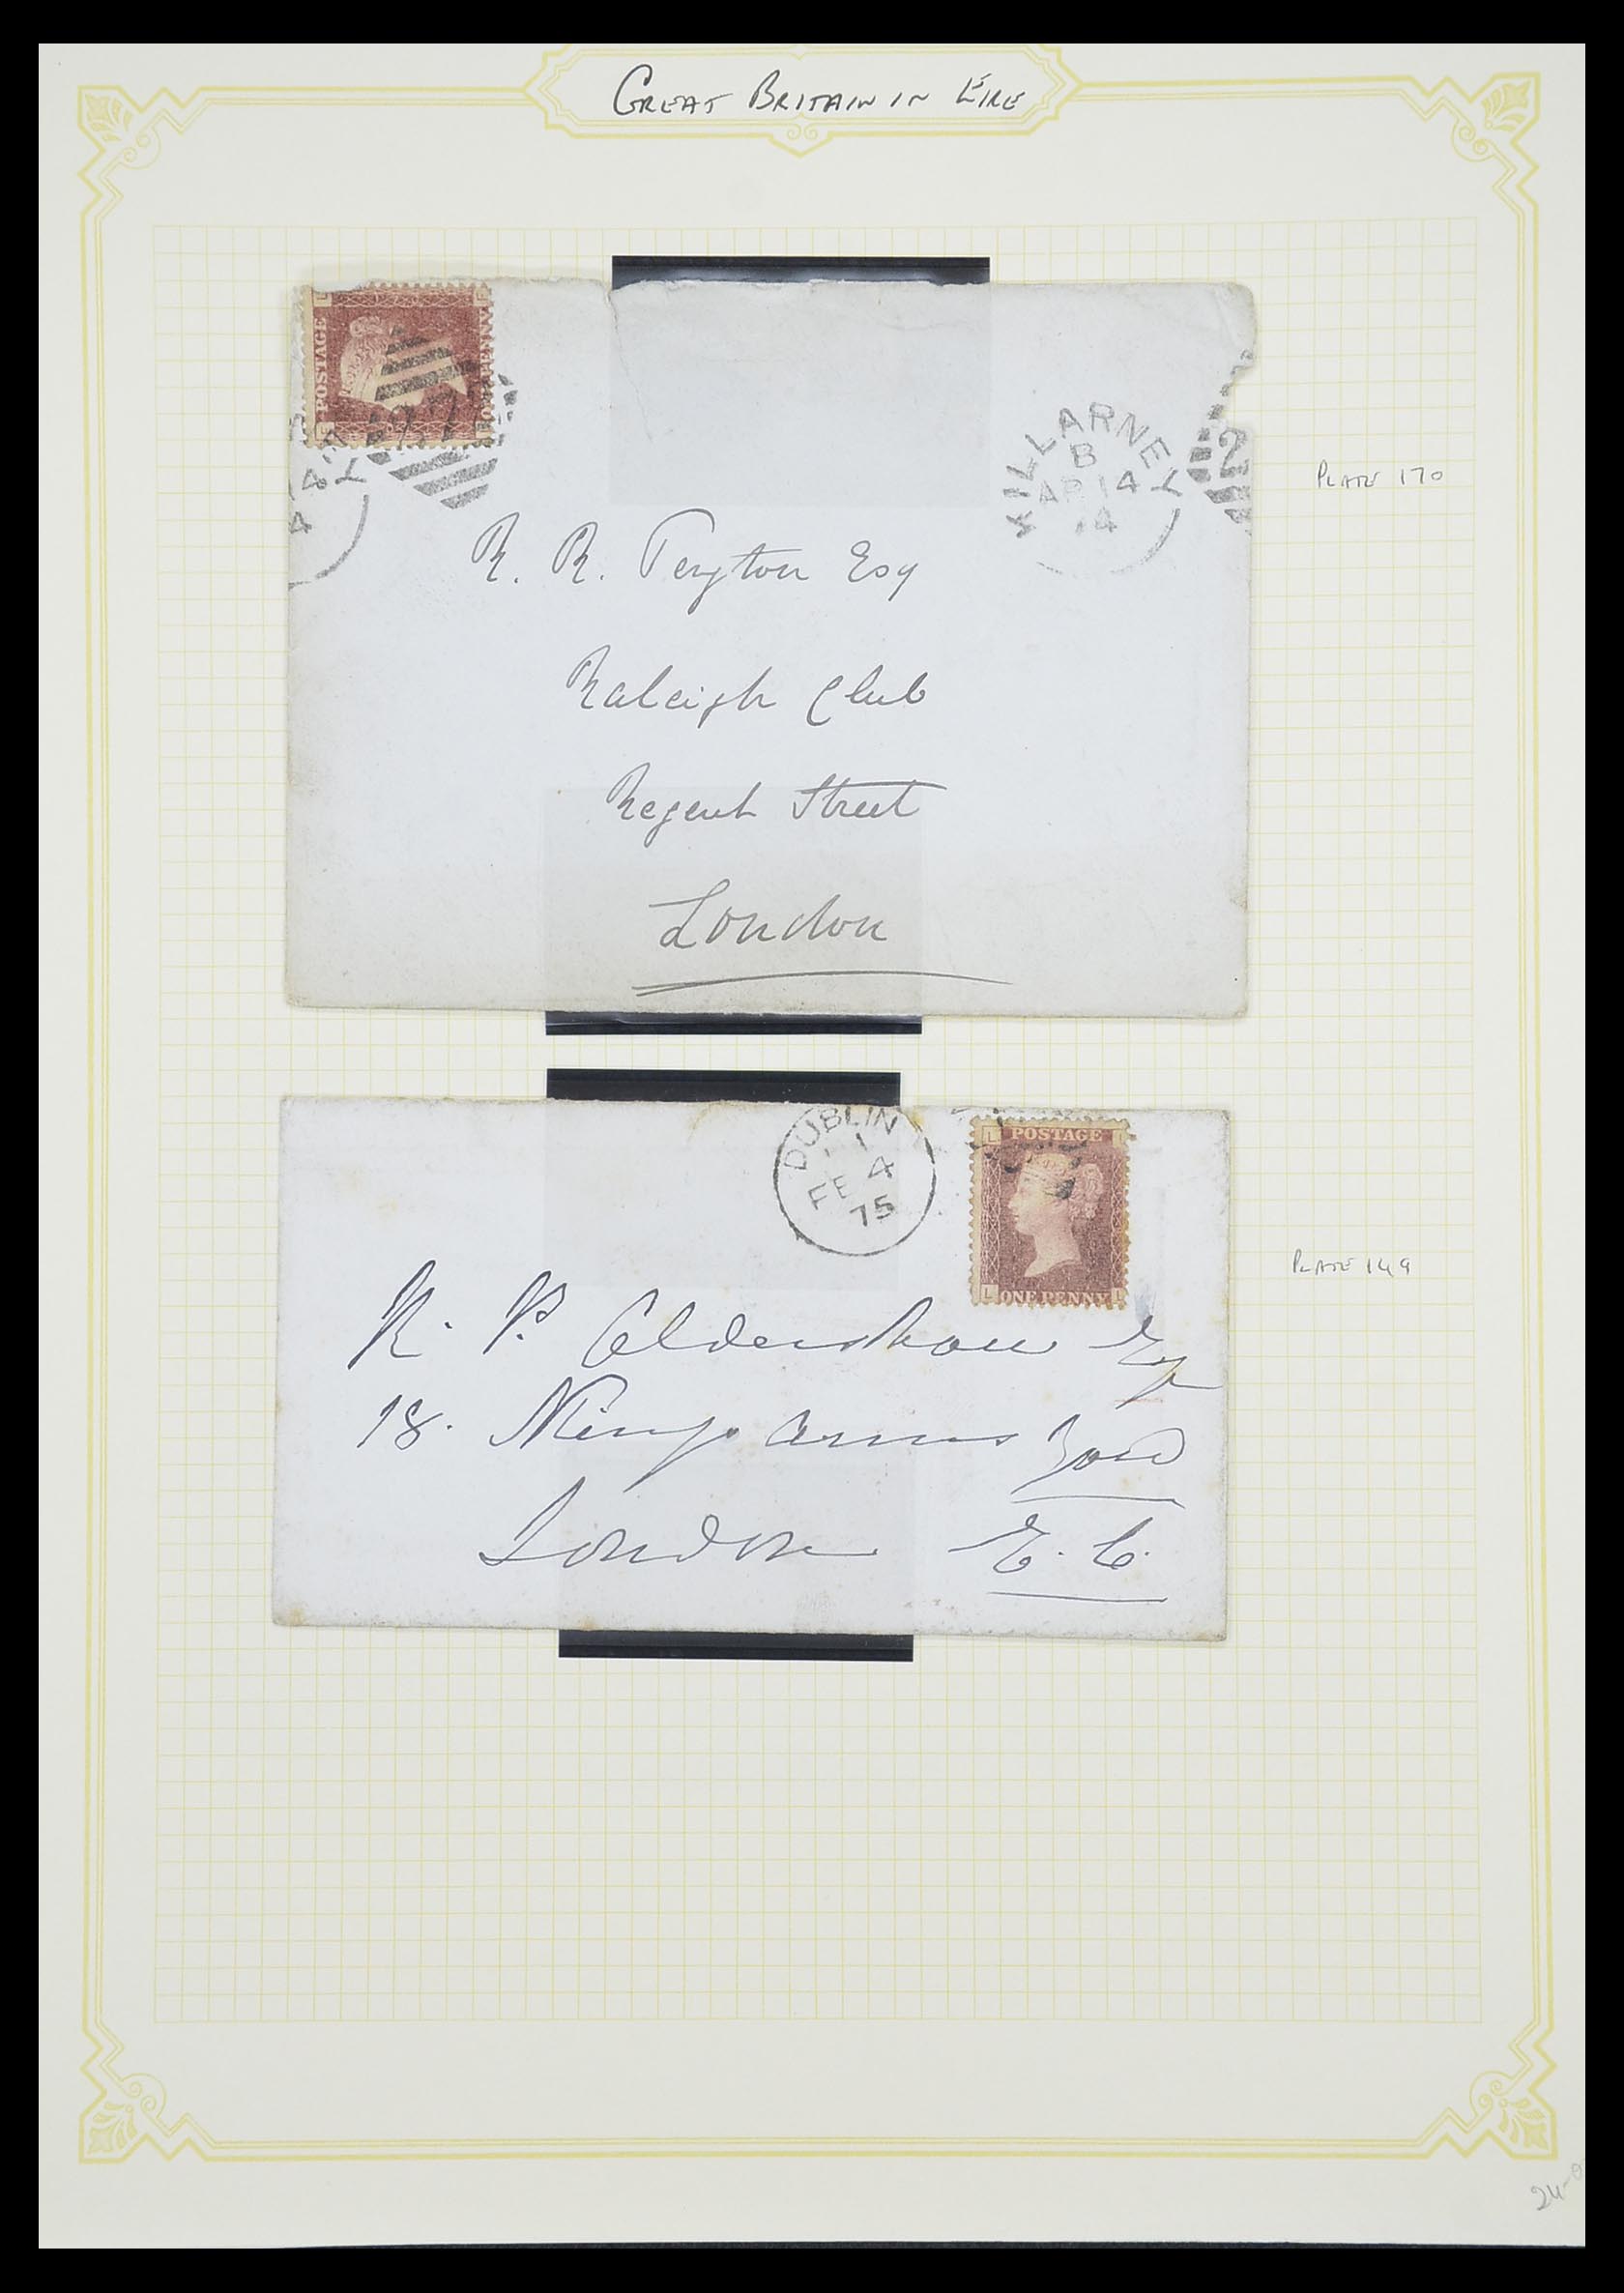 GREAT BRITAIN IN ÉIRE
POSTAGE
KILLARNEY
B
AP 14
4
2
PLATE 170
R. R. Peyton Esq
Raleigh Club
Regent Street
London
DUBLIN
1
FE 4
75
L POSTAGE L
L ONE PENNY L
PLATE 149
R. P. Esq
18. Kings Arms Yard
London E. C.
24-0